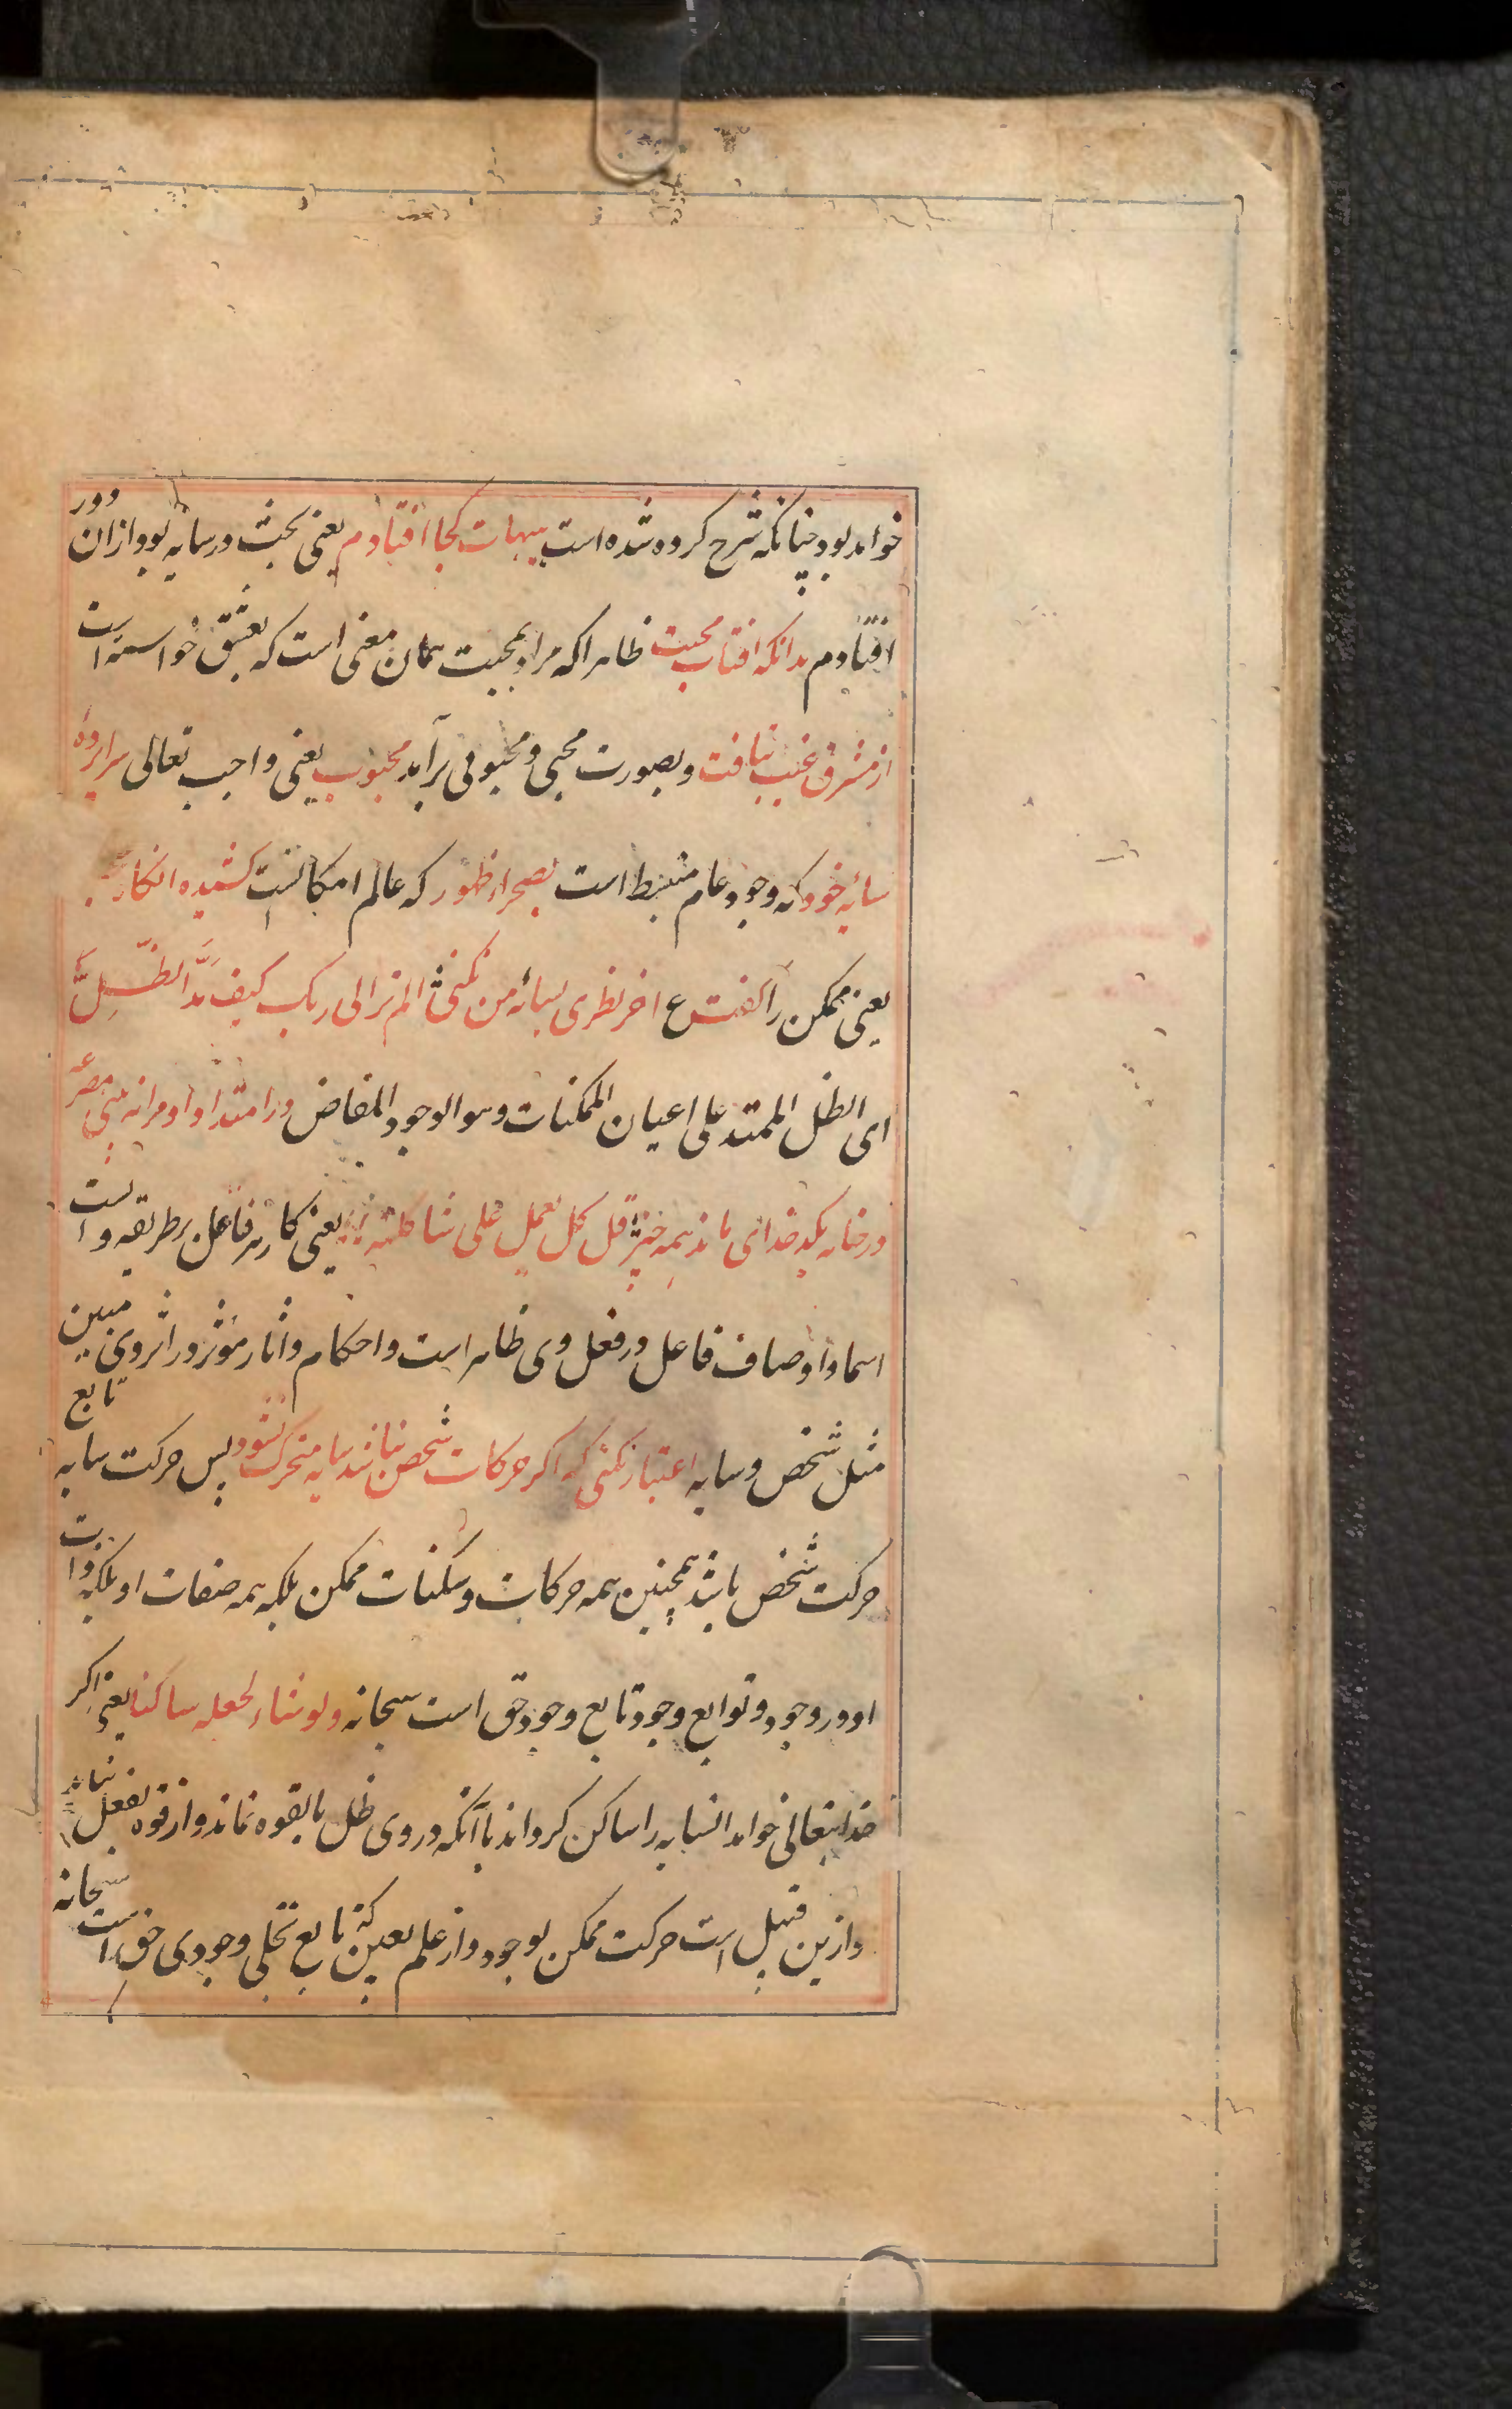 خواهد بود چنانکه شرح کرده شده است هیهات کجا افتادم یعنی بحث در سایه بود از ان دور
افتادم بدانکه افتاب محبت ظاهرا که مراد بمحبت همان معنی است که بعشق خواسته است
از مشرق غیب بتافت و بصورت محبی و محبوبی برآمد محبوب یعنی واجب تعالی سراپرده
سایه خود که وجود عام منبسط است بصحراء ظهور که عالم امکانست کشیده انکاه
یعنی ممکن را گفت ع اخر نظری بسائه من نکنی الم تر الی ربک کیف مَدَّ الظِّلَّ
ای الظل الممتد علی اعیان الممکنات وهو الوجود المفاض در امتداد او مرا نه بینی مصرعه
در خانه بکدخدای ماند همه چیز قل کل یعمل علی شاکلته یعنی کار هر فاعل بر طریقه و است
اسما و اوصاف فاعل در فعل وی ظاهر است و احکام و اثار مؤثر در اثر وی مبین
مثل شخص و سایه اعتبار نکنی که اگر حرکات شخص نباشد سایه متحرک نشود پس حرکت سایه تابع
حرکت شخص باشد همچنین همه حرکات و سکنات ممکن بلکه همه صفات او بلکه ذات
او در وجود و توابع وجود تابع وجود حق است سبحانه ولو شاء لجعله ساکنا یعنی اگر
خدایتعالی خواهد انسایه را ساکن گرداند با آنکه در وی ظل بالقوه نماند و از قوه بفعل نیاید
و ازین قبیل است حرکت ممکن بوجود و از علم بعین که تابع تجلی وجودی حق است سبحانه